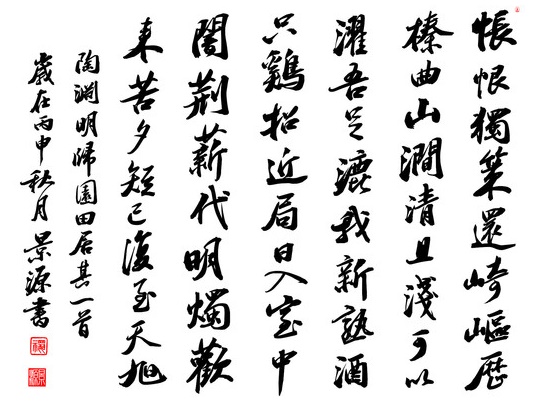 悵恨獨策還崎嶇歷
榛曲山澗清且淺可以
濯吾足漉我新熟酒
只鷄招近局日入室中
闇荊薪代明燭歡
來苦夕短已復至天旭
陶淵明歸園田居其一首
歲在丙申秋月景源書